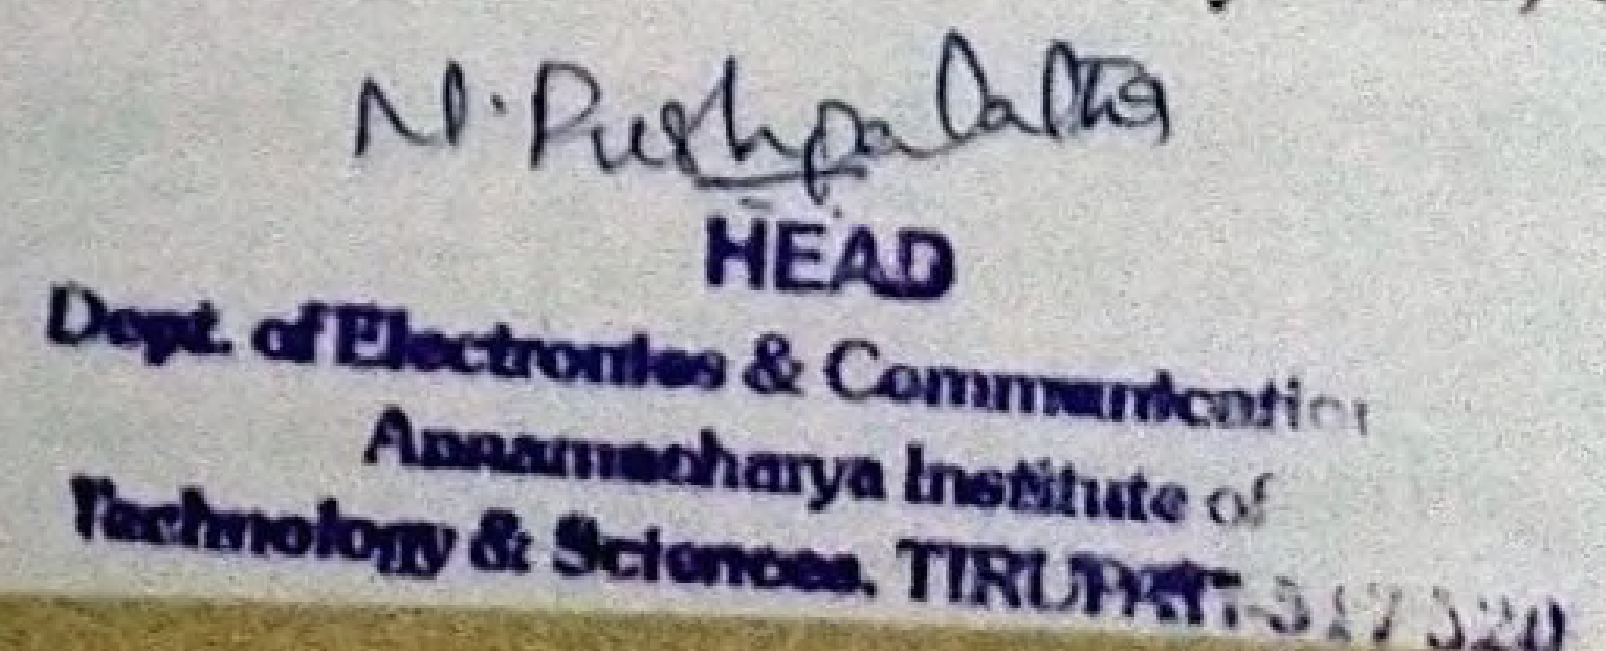 N. Pushpalatha
HEAD
Dept. of Electronics & Communication
Annamacharya Institute of
Technology & Sciences, TIRUPATI-517 520